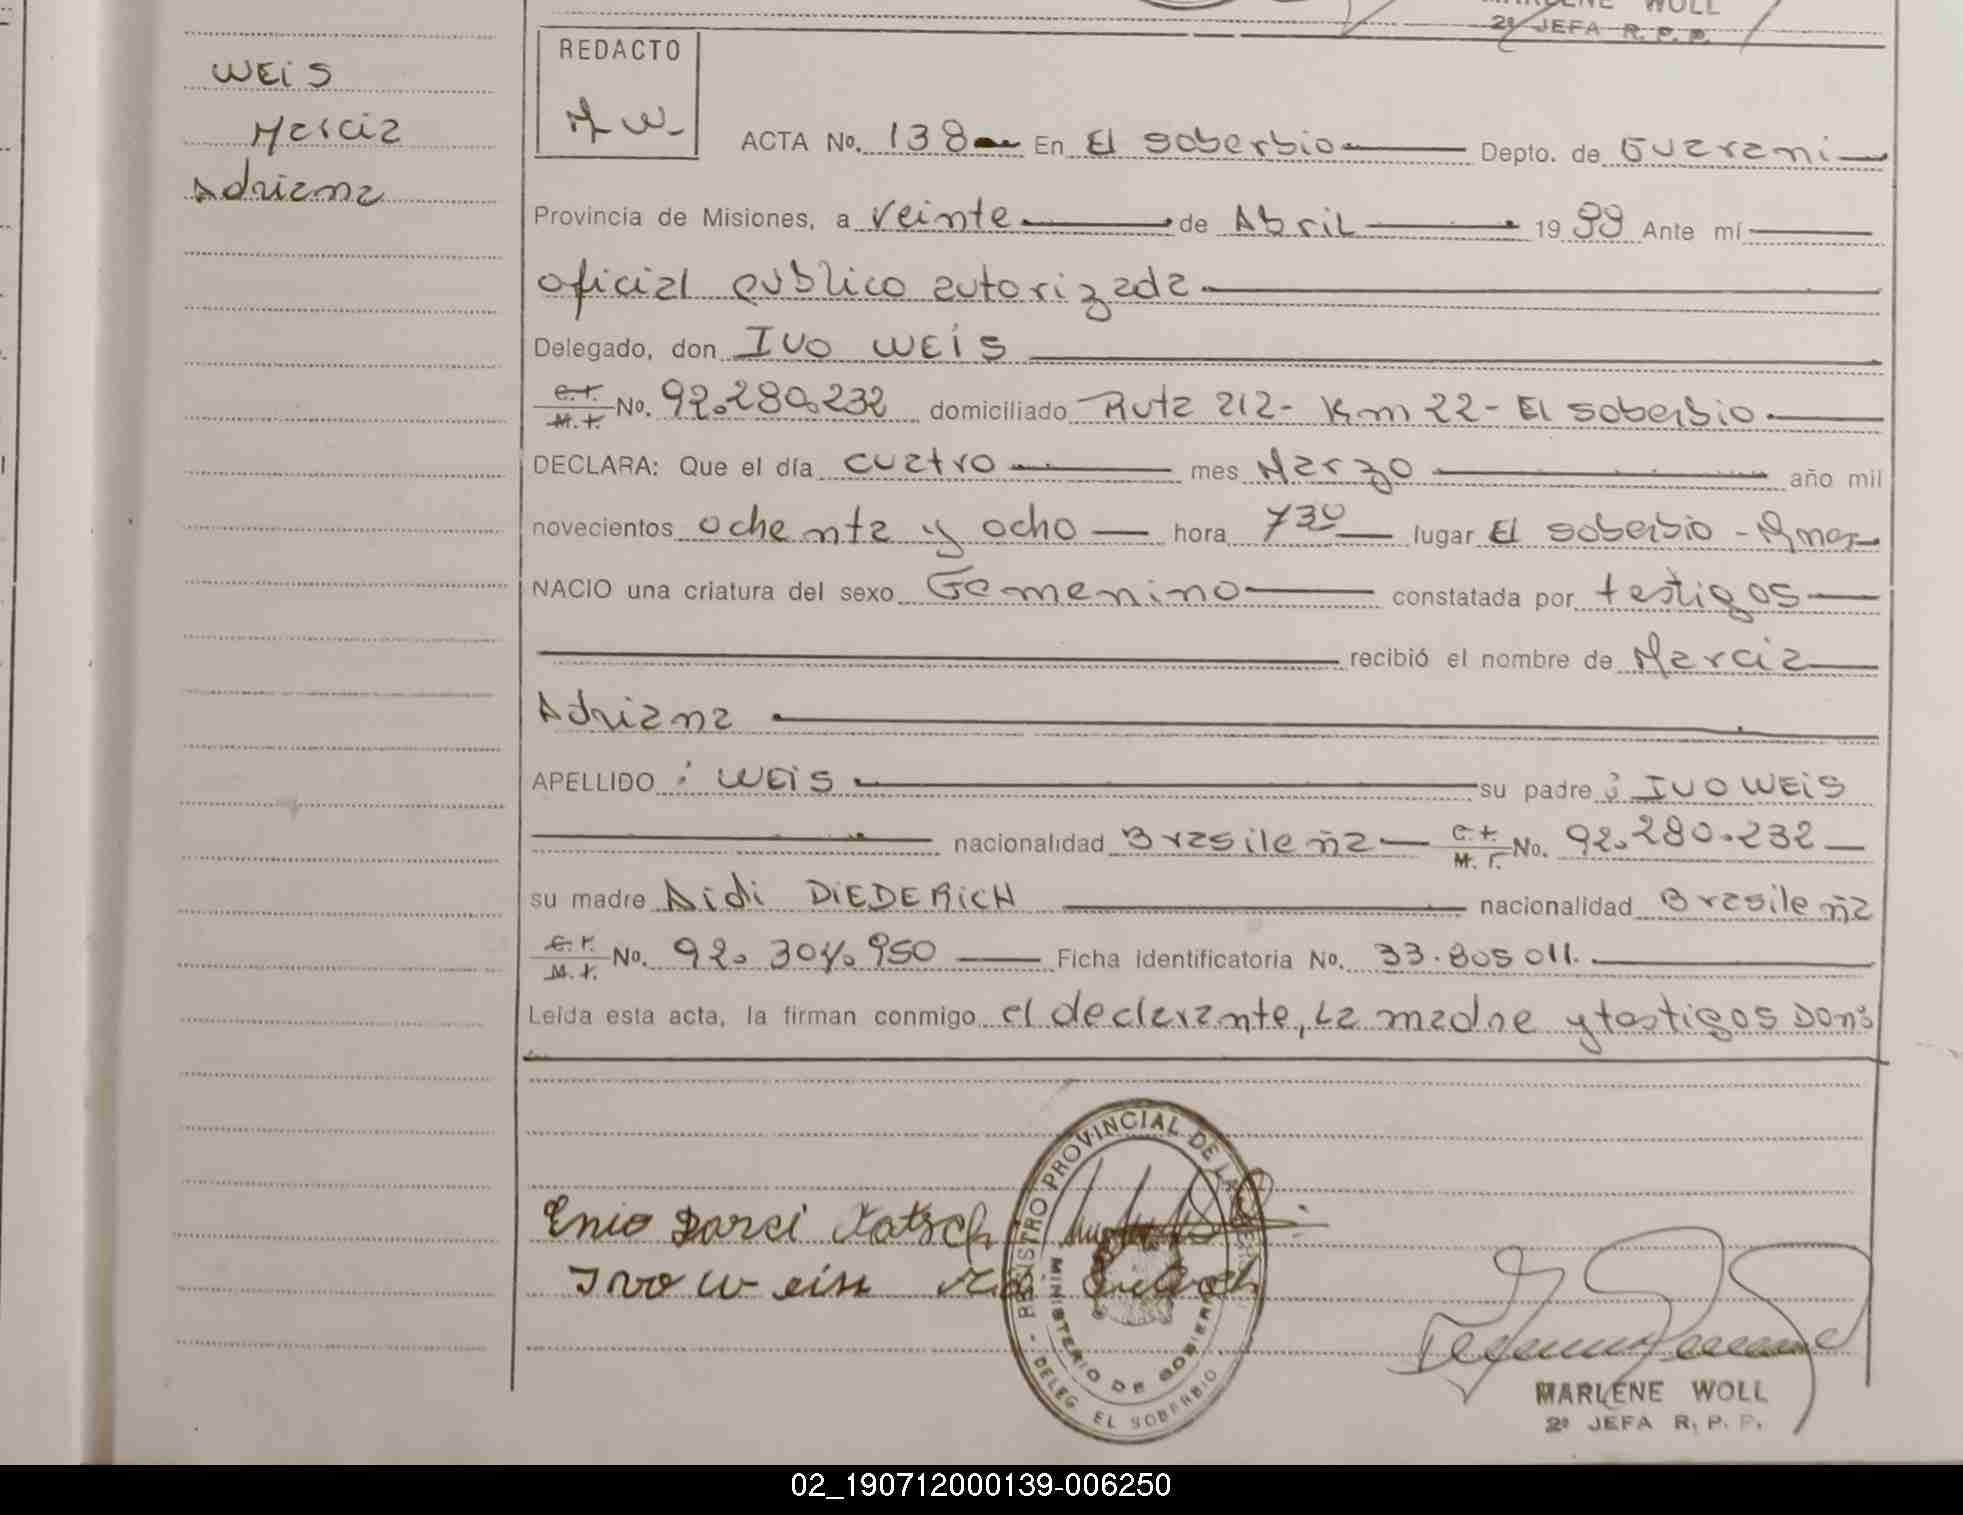 MARLENE WOLL
2ª JEFA R. P. P.
WEIS
Marcia
Adriana
REDACTO
M W
ACTA No. 138 En El Soberbio Depto. de Guarani
Provincia de Misiones, a veinte de Abril 19 88 Ante mí
oficial publico autorizada
Delegado, don IVO WEIS
C.I. M.I. No. 92.280.232 domiciliado Ruta 212- Km 22- El Soberbio
DECLARA: Que el día cuatro mes Marzo año mil
novecientos ochenta y ocho hora 7 30 lugar El Soberbio -
NACIO una criatura del sexo Femenino constatada por testigos
recibió el nombre de Marcia
Adriana
APELLIDO : WEIS su padre : IVO WEIS
nacionalidad Brasileña C.I. M.I. No. 92.280.232
su madre Didi DIEDERICH nacionalidad Brasileña
C.I. M.I. No. 92. 304.950 Ficha identificatoria No. 33.805 011.
Leída esta acta, la firman conmigo el declarante, La madre y testigos Don:
REGISTRO PROVINCIAL DE LAS PERS
MINISTERIO DE GOBIERN
DELEG EL SOBERBIO
Enio Darci
Ivo Weis
MARLENE WOLL
2ª JEFA R. P. P.
02_190712000139-006250